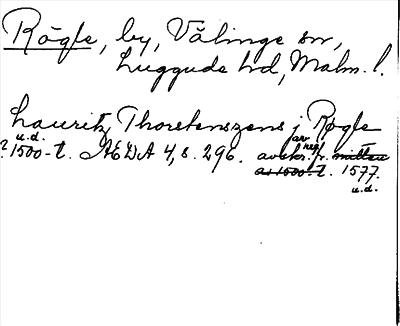 Rögle, by, Välinge sn,
Luggude hd, Malm. l.
Lauritz Thorstenszens j Røgle
u.d. av reg
? 1500-t. ÆDA 4, s. 296. avskr. fr. mitten
av 1500-t. 1577.
u.d.